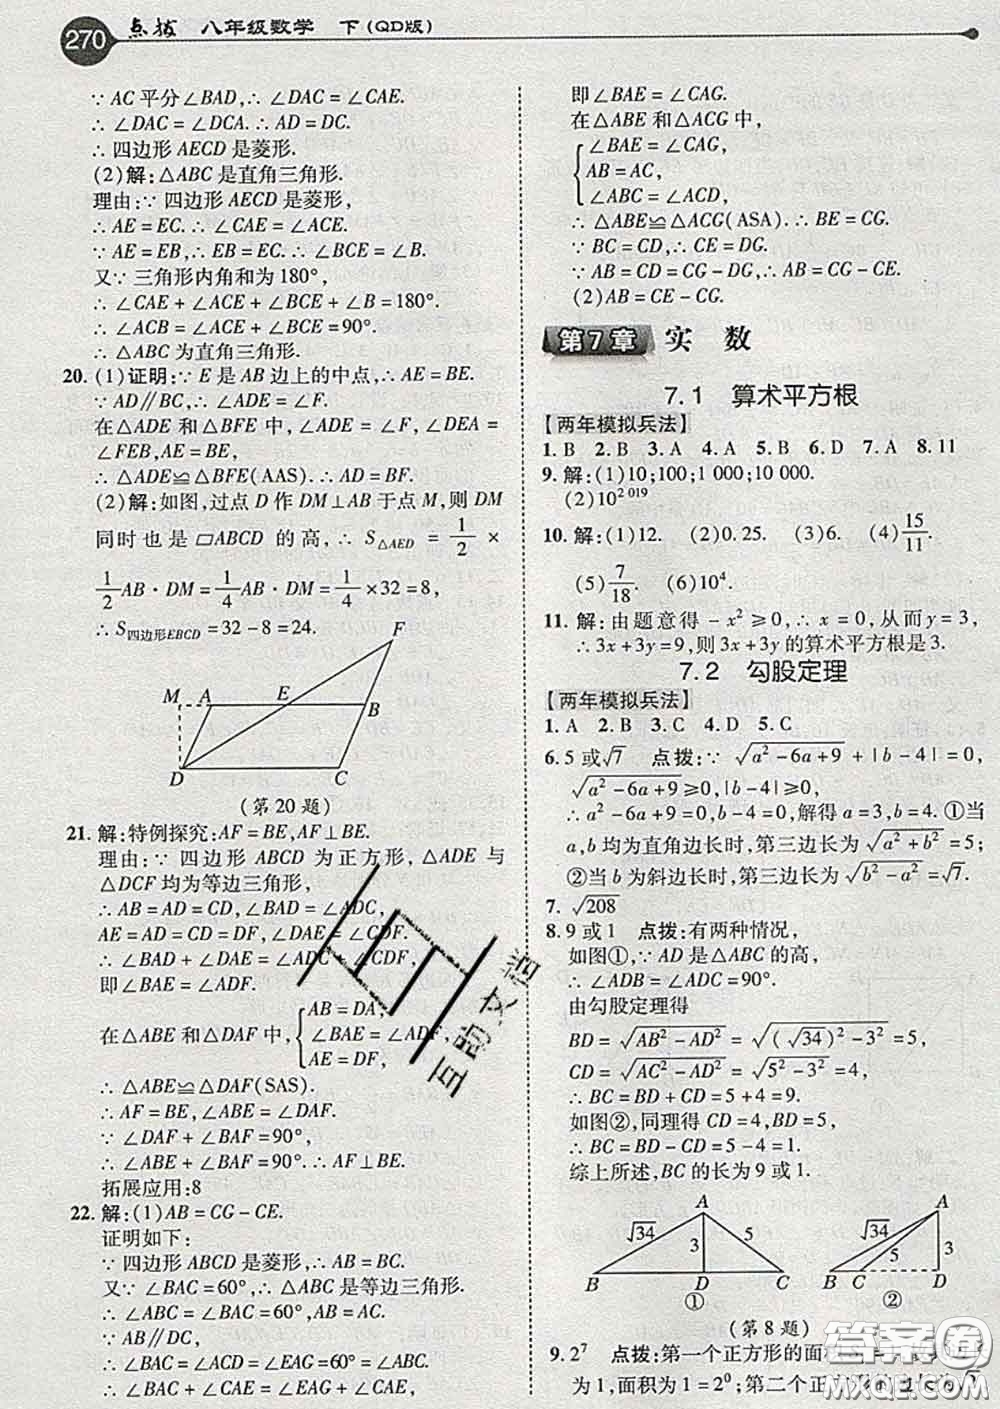 270 点拨 八年级数学 下(QD版)
∵AC平分∠BAD,∴∠DAC=∠CAE.
∴∠DAC=∠DCA.∴AD=DC.
∴四边形AECD是菱形.
(2)解:△ABC是直角三角形.
理由:∵四边形AECD是菱形,
∴AE=EC.∴∠CAE=∠ACE.
∵AE=EB,∴EB=EC.∴∠BCE=∠B.
又∵三角形内角和为180°,
∴∠CAE+∠ACE+∠BCE+∠B=180°.
∴∠ACB=∠ACE+∠BCE=90°.
∴△ABC为直角三角形.
20. (1)证明:∵E是AB边上的中点,∴AE=BE.
∵AD∥BC,∴∠ADE=∠F.
在△ADE和△BFE中,∠ADE=∠F,∠DEA
=∠FEB,AE=BE,
∴△ADE≌△BFE(AAS).∴AD=BF.
(2)解:如图,过点D作DM⊥AB于点M,则DM
同时也是▱ABCD的高,∴S△AED=1/2×
1/2AB·DM=1/4AB·DM=1/4×32=8,
∴S四边形EBCD=32-8=24.
F
M A E B
D C
(第20题)
21. 解:特例探究:AF=BE,AF⊥BE.
理由:∵四边形ABCD为正方形,△ADE与
△DCF均为等边三角形,
∴AB=AD=CD,∠BAD=∠ADC,
AE=AD=CD=DF,∠DAE=∠CDF.
∴∠BAD+∠DAE=∠ADC+∠CDF,
即∠BAE=∠ADF.
在△ABE和△DAF中,{AB=DA,
∠BAE=∠ADF,
AE=DF,
∴△ABE≌△DAF(SAS).
∴AF=BE,∠ABE=∠DAF.
∵∠DAF+∠BAF=90°,
∴∠ABE+∠BAF=90°.∴AF⊥BE.
拓展应用:8
22. 解:(1)AB=CG-CE.
证明如下:
∵四边形ABCD是菱形,∴AB=BC.
又∵∠BAC=60°,∴△ABC是等边三角形.
∴∠ABC=∠BAC=60°,AB=AC.
∵AB∥DC,∴∠BAC=∠ACD=60°.
∴∠BAC-∠EAC=∠EAG-∠EAC,
即∠BAE=∠CAG.
在△ABE和△ACG中,
{∠BAE=∠CAG,
AB=AC,
∠ABC=∠ACD,
∴△ABE≌△ACG(ASA).∴BE=CG.
∵BC=CD,∴CE=DG.
∴AB=CD=CG-DG=CG-CE.
(2)AB=CE-CG.
第7章 实 数
7.1 算术平方根
【两年模拟兵法】
1. B 2. B 3. C 4. A 5. B 6. D 7. A 8. 11
9. 解:(1)10;100;1 000;10 000.
(2)10^2 019
10. 解:(1)12. (2)0.25. (3)6. (4)15/11.
(5)7/18. (6)10⁴.
11. 解:由题意得-x²≥0,∴x=0,从而y=3,
∴3x+3y=9,则3x+3y的算术平方根是3.
7.2 勾股定理
【两年模拟兵法】
1. A 2. B 3. C 4. D 5. C
6. 5或√7 点拨:∵√(a²-6a+9)+|b-4|=0,
√(a²-6a+9)≥0,|b-4|≥0,
∴a²-6a+9=0,b-4=0,解得a=3,b=4.①当
a,b均为直角边长时,第三边长为√(a²+b²)=5;
②当b为斜边长时,第三边长为√(b²-a²)=√7.
7. √208
8. 9或1 点拨:有两种情况,
如图①,∵AD是△ABC的高,
∴∠ADB=∠ADC=90°.
由勾股定理得
BD=√(AB²-AD²)=√((√34)²-3²)=5,
CD=√(AC²-AD²)=√(5²-3²)=4,
∴BC=BD+CD=5+4=9.
如图②,同理得CD=4,BD=5,
∴BC=BD-CD=5-4=1.
综上所述,BC的长为9或1.
A A
√34 3 5 √34 5 3
B D C B C D
① ②
(第8题)
9. 2⁷ 点拨:第一个正方形的面积
为1,面积为1=2⁰;第二个正方形的边长为√2
互助文档
答案圈
MXQE.COM